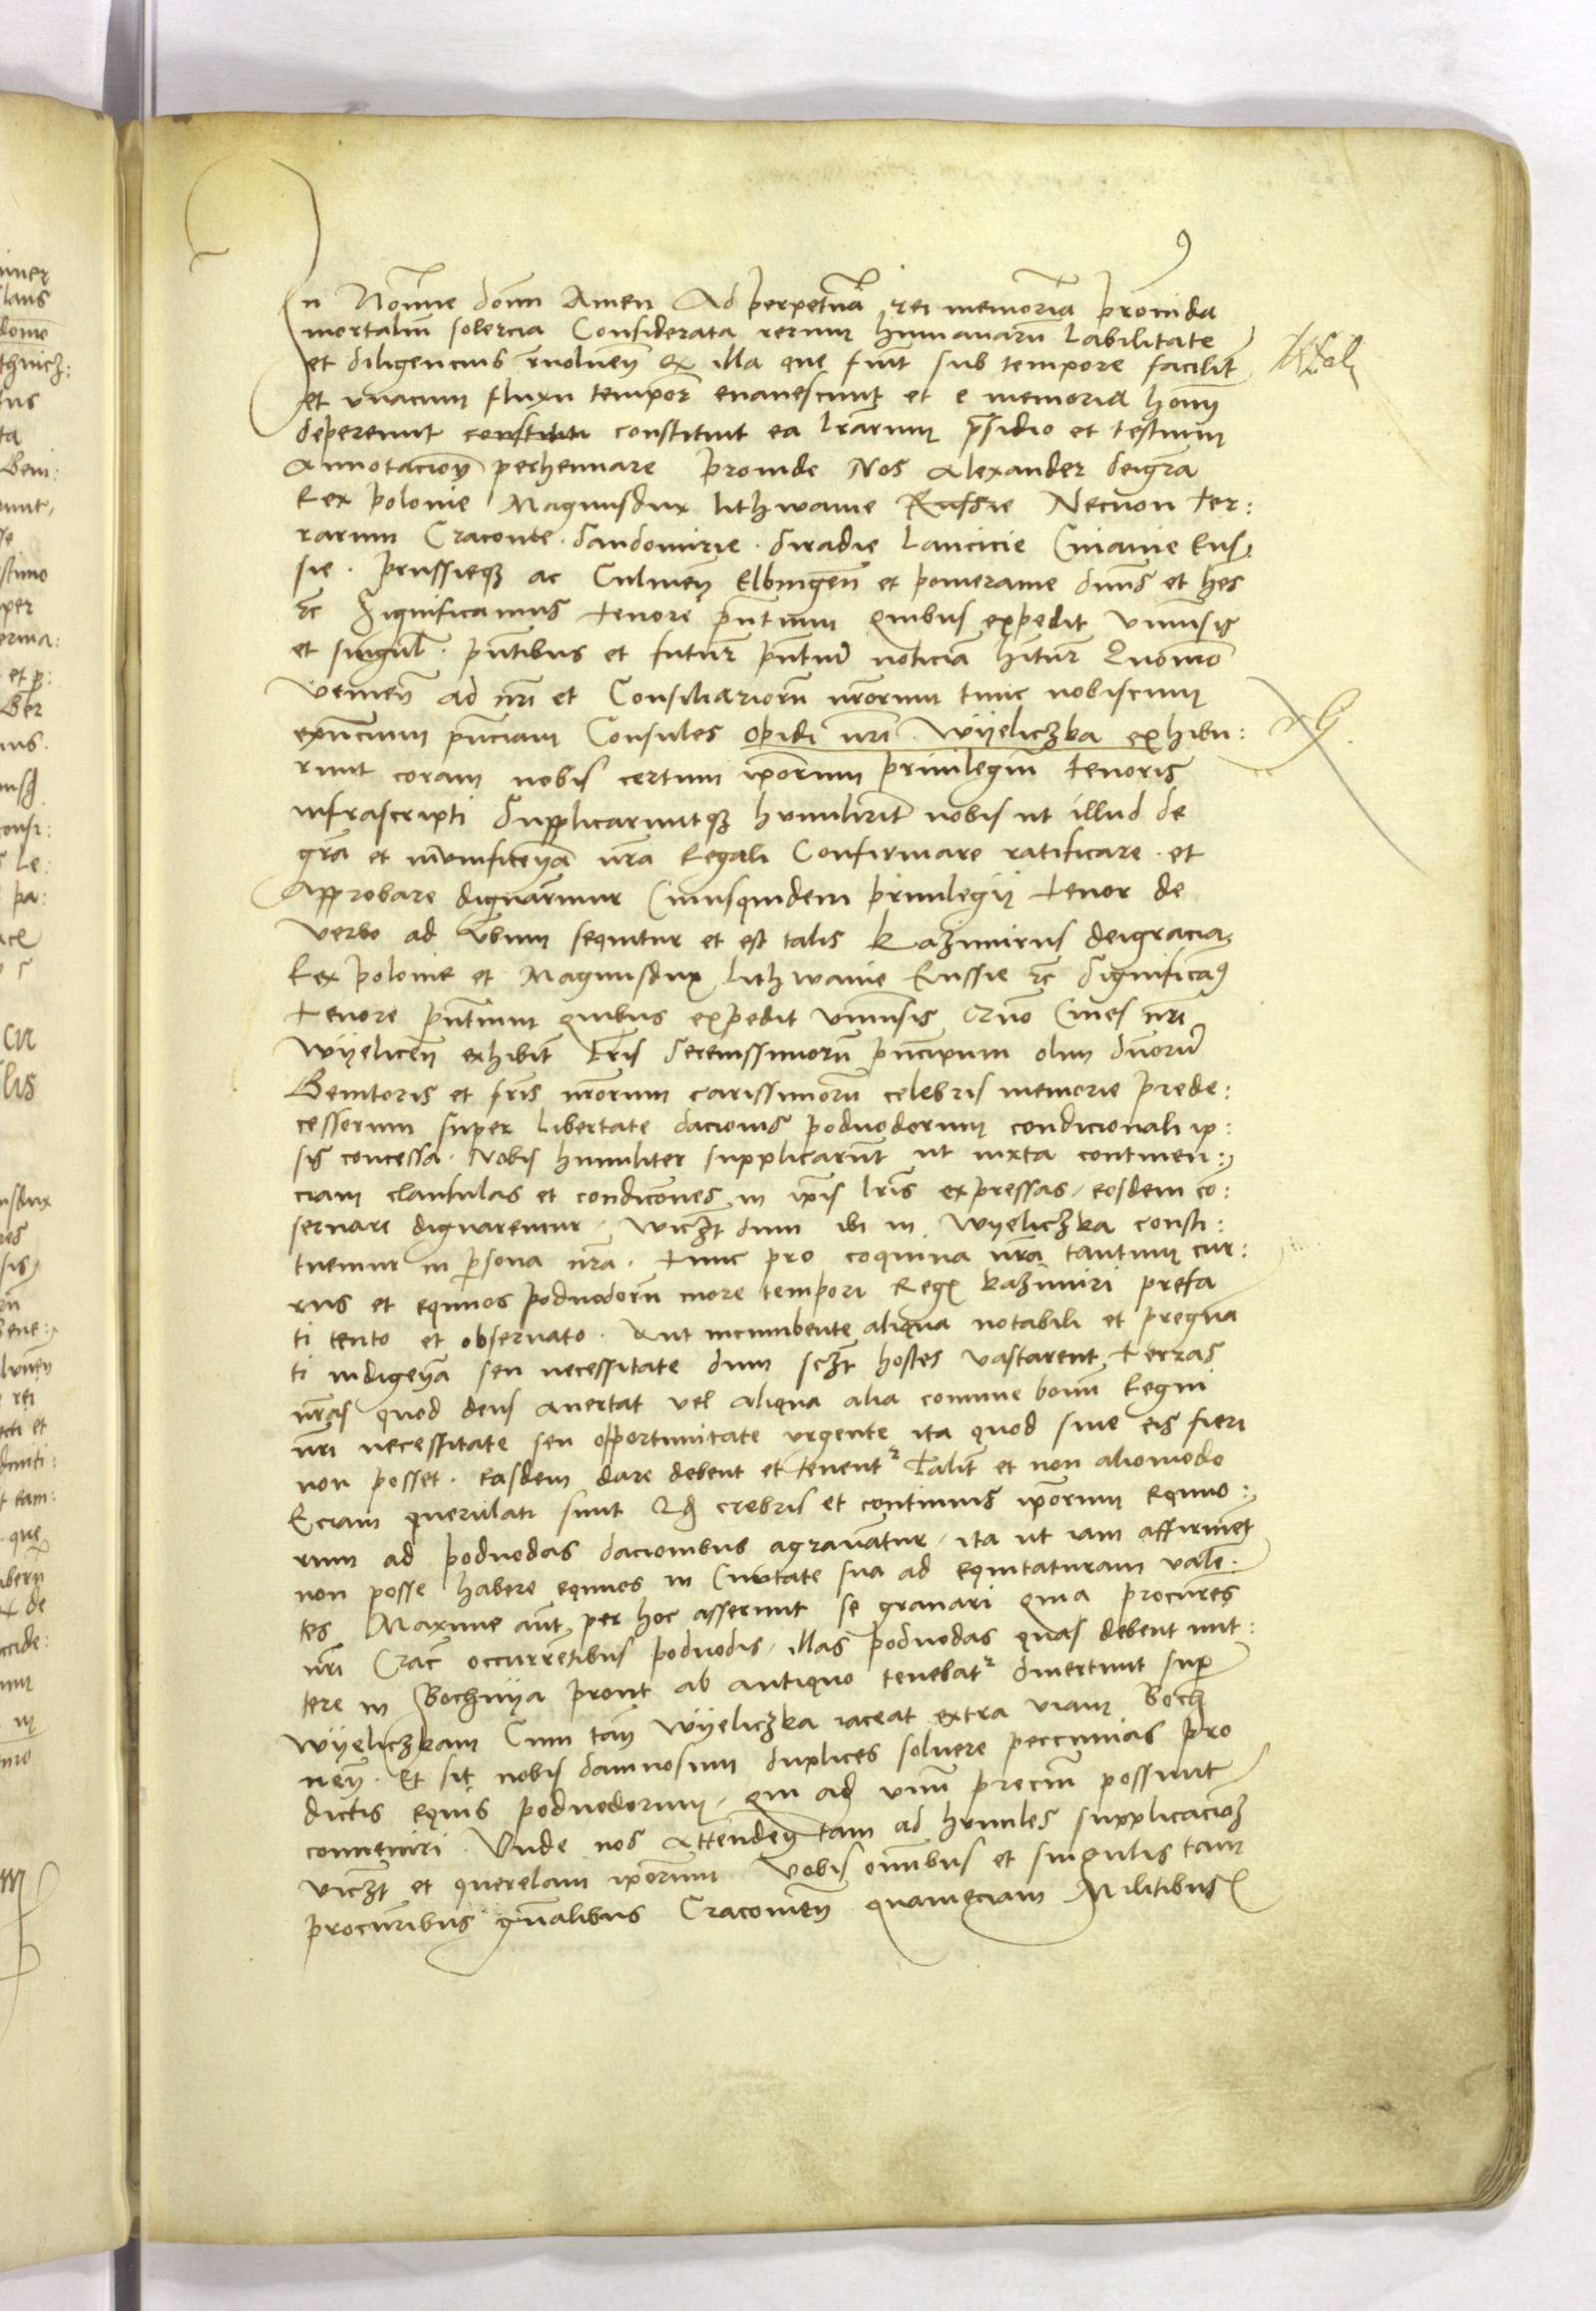 9
In Nomine domini Amen Ad perpetuā rei memoriā prouida
mortaliū solercia Considerata rerum humanarū labilitate
et diligencius ruoluen̄ ex illa que fiūt sub tempore facilit̄
et vnacum fluxu tempor̄ euanescunt et e memoria hoīm
depereunt constituti constituit ea lrārum pr̄sidio et testium
Annotacion̄ perhennare proinde Nos Alexander deigrā
Rex polonie Magnusdux lithwanie Russie Necnon ter:
rarum Cracouie . Sandomirie . Siradie lancicie Cuiauie Rus
sie . prussieqȝ ac Culmen̄ Elbingen̄ et pomeranie dnūs et hēs
ꝛc̄ Significamus tenore pn̄tium quibus expedit vniuersis
et singul̄ . pn̄tibus et futur̄ pn̄tium noticiā hitur̄ Quomō
venien̄ ad nrī et Consiliariorū nrōrum tunc nobiscum
exn̄cium pn̄ciam Consules opidi nrī . Wyeliczka exhibu:
runt coram nobis certum ipōrum priuilegiū tenoris
infrascripti Supplicaruntqȝ humilit̄ nobis ut illud de
grā et munificen̄ā nrā Regali Confirmare ratificare . et
Approbare dignarēmur Cuiusquidem priuilegij tenor de
verbo ad vbum sequitur et est talis Kazimirus deigracia
Rex polonie et Magnusdux lithwanie Russie ꝛc̄ Significam9
tenore pn̄tium quibus expedit vniuersis Quō Ciues nrī
Wyelicen̄ exhibit̄ lrīs Serenissimorū prīncipum olim duorū
Genitoris et frīs nrōrum carissimorū celebris memorie prede:
cessorum super libertate dacionis podwodarum condicionali ip:
sis concessa . Nobis humiliter supplicarūt ut iuxta continen:
ciam clausulas et condicōnes in ipīs lrīs expressas / eosdem cō:
seruare dignaremur / Viczt dum ibi in Wyeliczka consti:
tuemur in persona nrā . tunc pro coquina nrā tantum cur:
rus et equuos podwodorū more tempori Regx Kazimiri prefa
ti tento et obseruato . Aut incumbente aliqua notabili et pregnā
ti indigen̄a seu necessitate dum sczt hostes vastarent terras
nrās quod deus auertat vel aliqua alia comune bonū Regni
nrī necessitate seu oportunitate vrgente ita quod sine eis fieri
non posset . Easdem dare debent et tenentr talit̄ et non aliomodo
Eciam querulati sunt Qd crebris et continuis ipōrum equuo:
rum ad podwodas dacionibus agrauātur / ita ut iam affirmēt
non posse habere equuos in Ciuitate sua ad equitaturam valen:
tes Maxime aūt per hoc asserunt se grauari quia procūres
nrī Crac̄ occurrētibus podwodis / illas podwodas quas debent mit:
tere in Bochnya prout ab antiquo tenebatr diuertunt suꝑ
Wyeliczkam Cum tan̄ Wyeliczka iaceat extra viam Boch
nen̄ . Et sit nobis damnosum duplices soluere peccunias pro
dictis equis podwodorum / qui ad vnū preciū possunt
conueniri . Vnde nos Attenden̄ tam ad humiles supplicacioēs
viczt et querelam ipōrum Vobis omībus et singulis tam
procūribus gnālibus Cracouien̄ quameciam Militibus